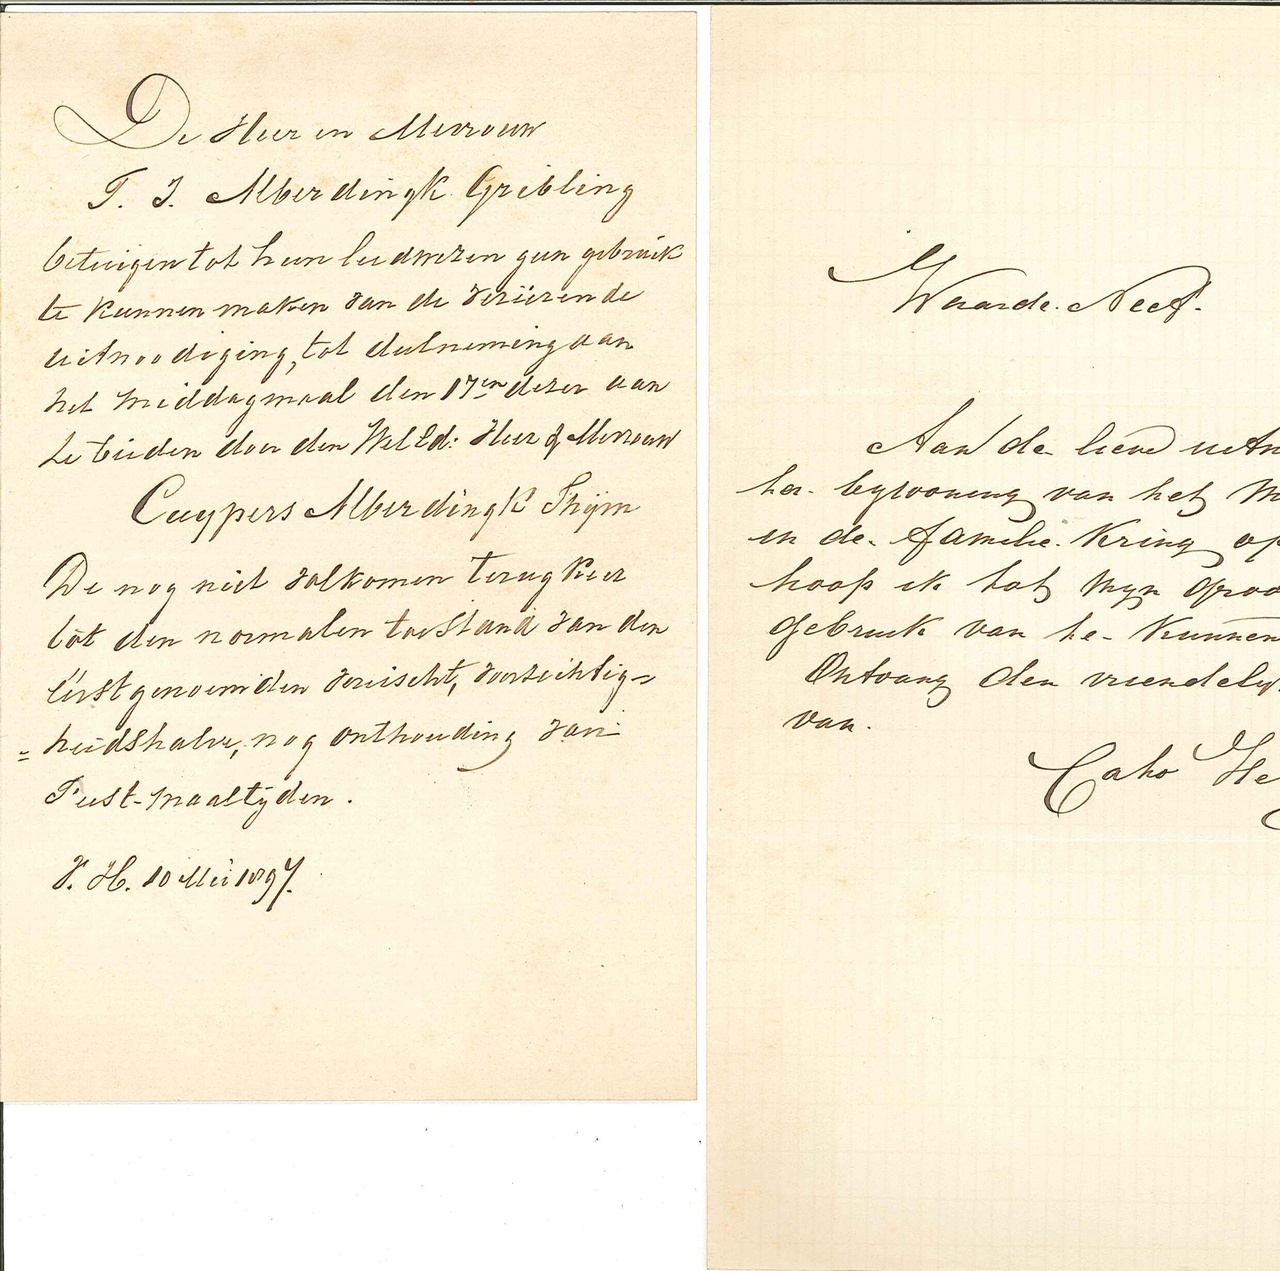 De Heer en Mevrouw
T. J. Alberdingk Gribling
betuigen tot hun leedwezen geen gebruik
te kunnen maken van de vereerende
uitnoodiging, tot deelneming aan
het middagmaal den 17en dezer aan
te bieden door den WelEd: Heer & Mevrouw
Cuypers Alberdingk Thijm
De nog niet volkomen terugkeer
tot den normalen toestand van den
eerstgenoemden vereischt, voorzichtig=
=heidshalve, nog onthouding van
Feest-maaltijden.
V. H. 10 Mei 1897.
Waarde Neef.
Aan de lieve uitn
ter bywooning van het M
in de familie kring op
hoop ik tot myn groo
gebruik van te kunnen
Ontvang den vriendely
van.
Cato He